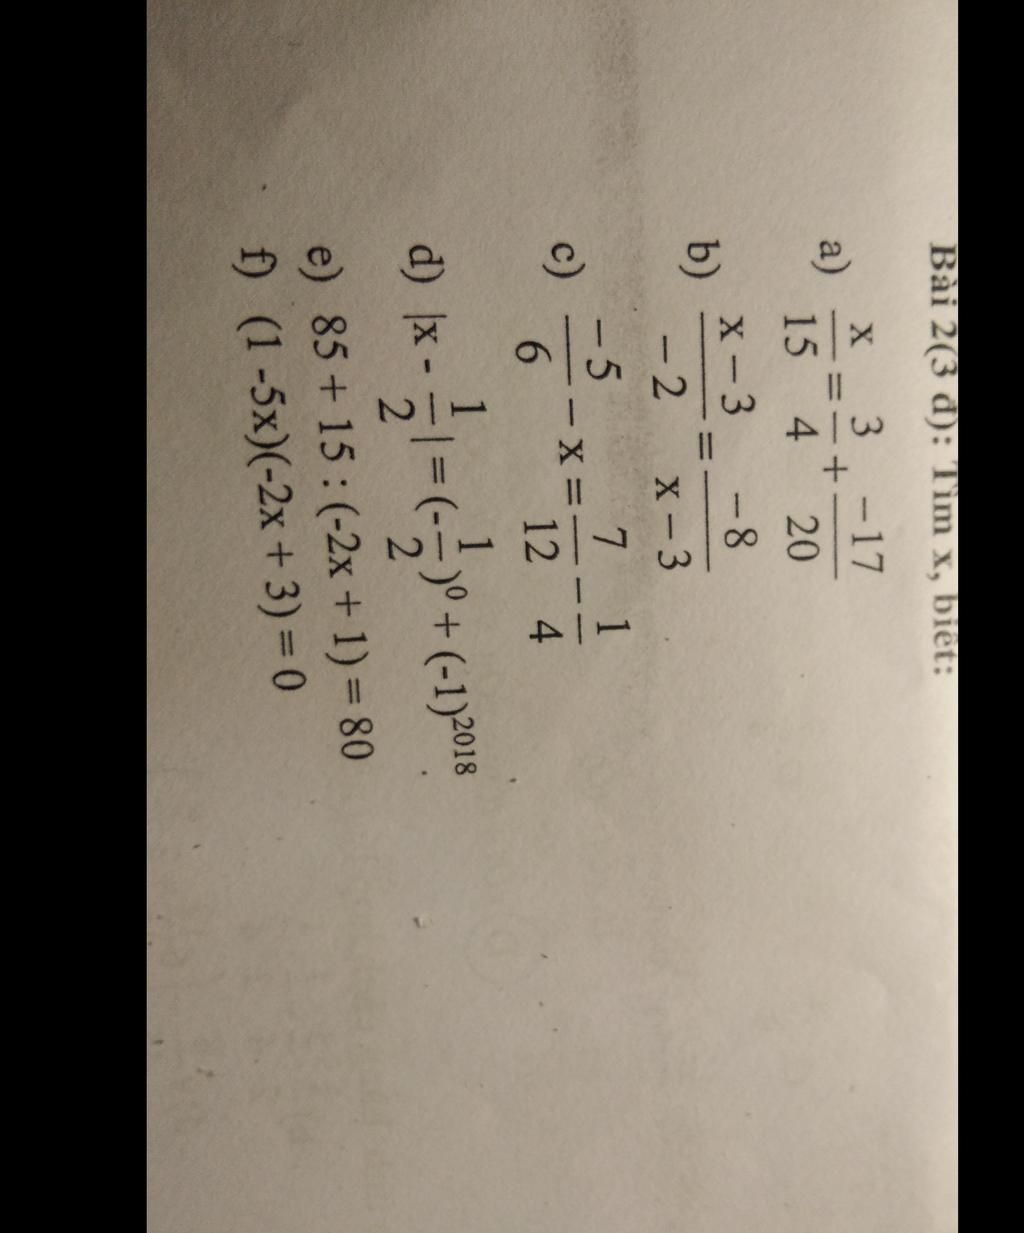 Bài 2(3 đ): Tìm x, biết:
a) x/15 = 3/4 + -17/20
b) x-3/-2 = -8/x-3
c) -5/6 - x = 7/12 - 1/4
d) |x - 1/2| = (-1/2)⁰ + (-1)²⁰¹⁸
e) 85 + 15 : (-2x + 1) = 80
f) (1 -5x)(-2x + 3) = 0